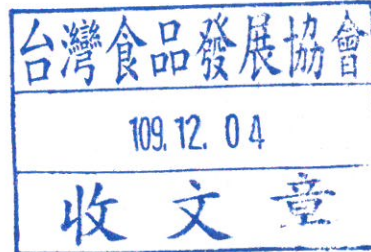 台灣食品發展協會
109.12.04
收文章